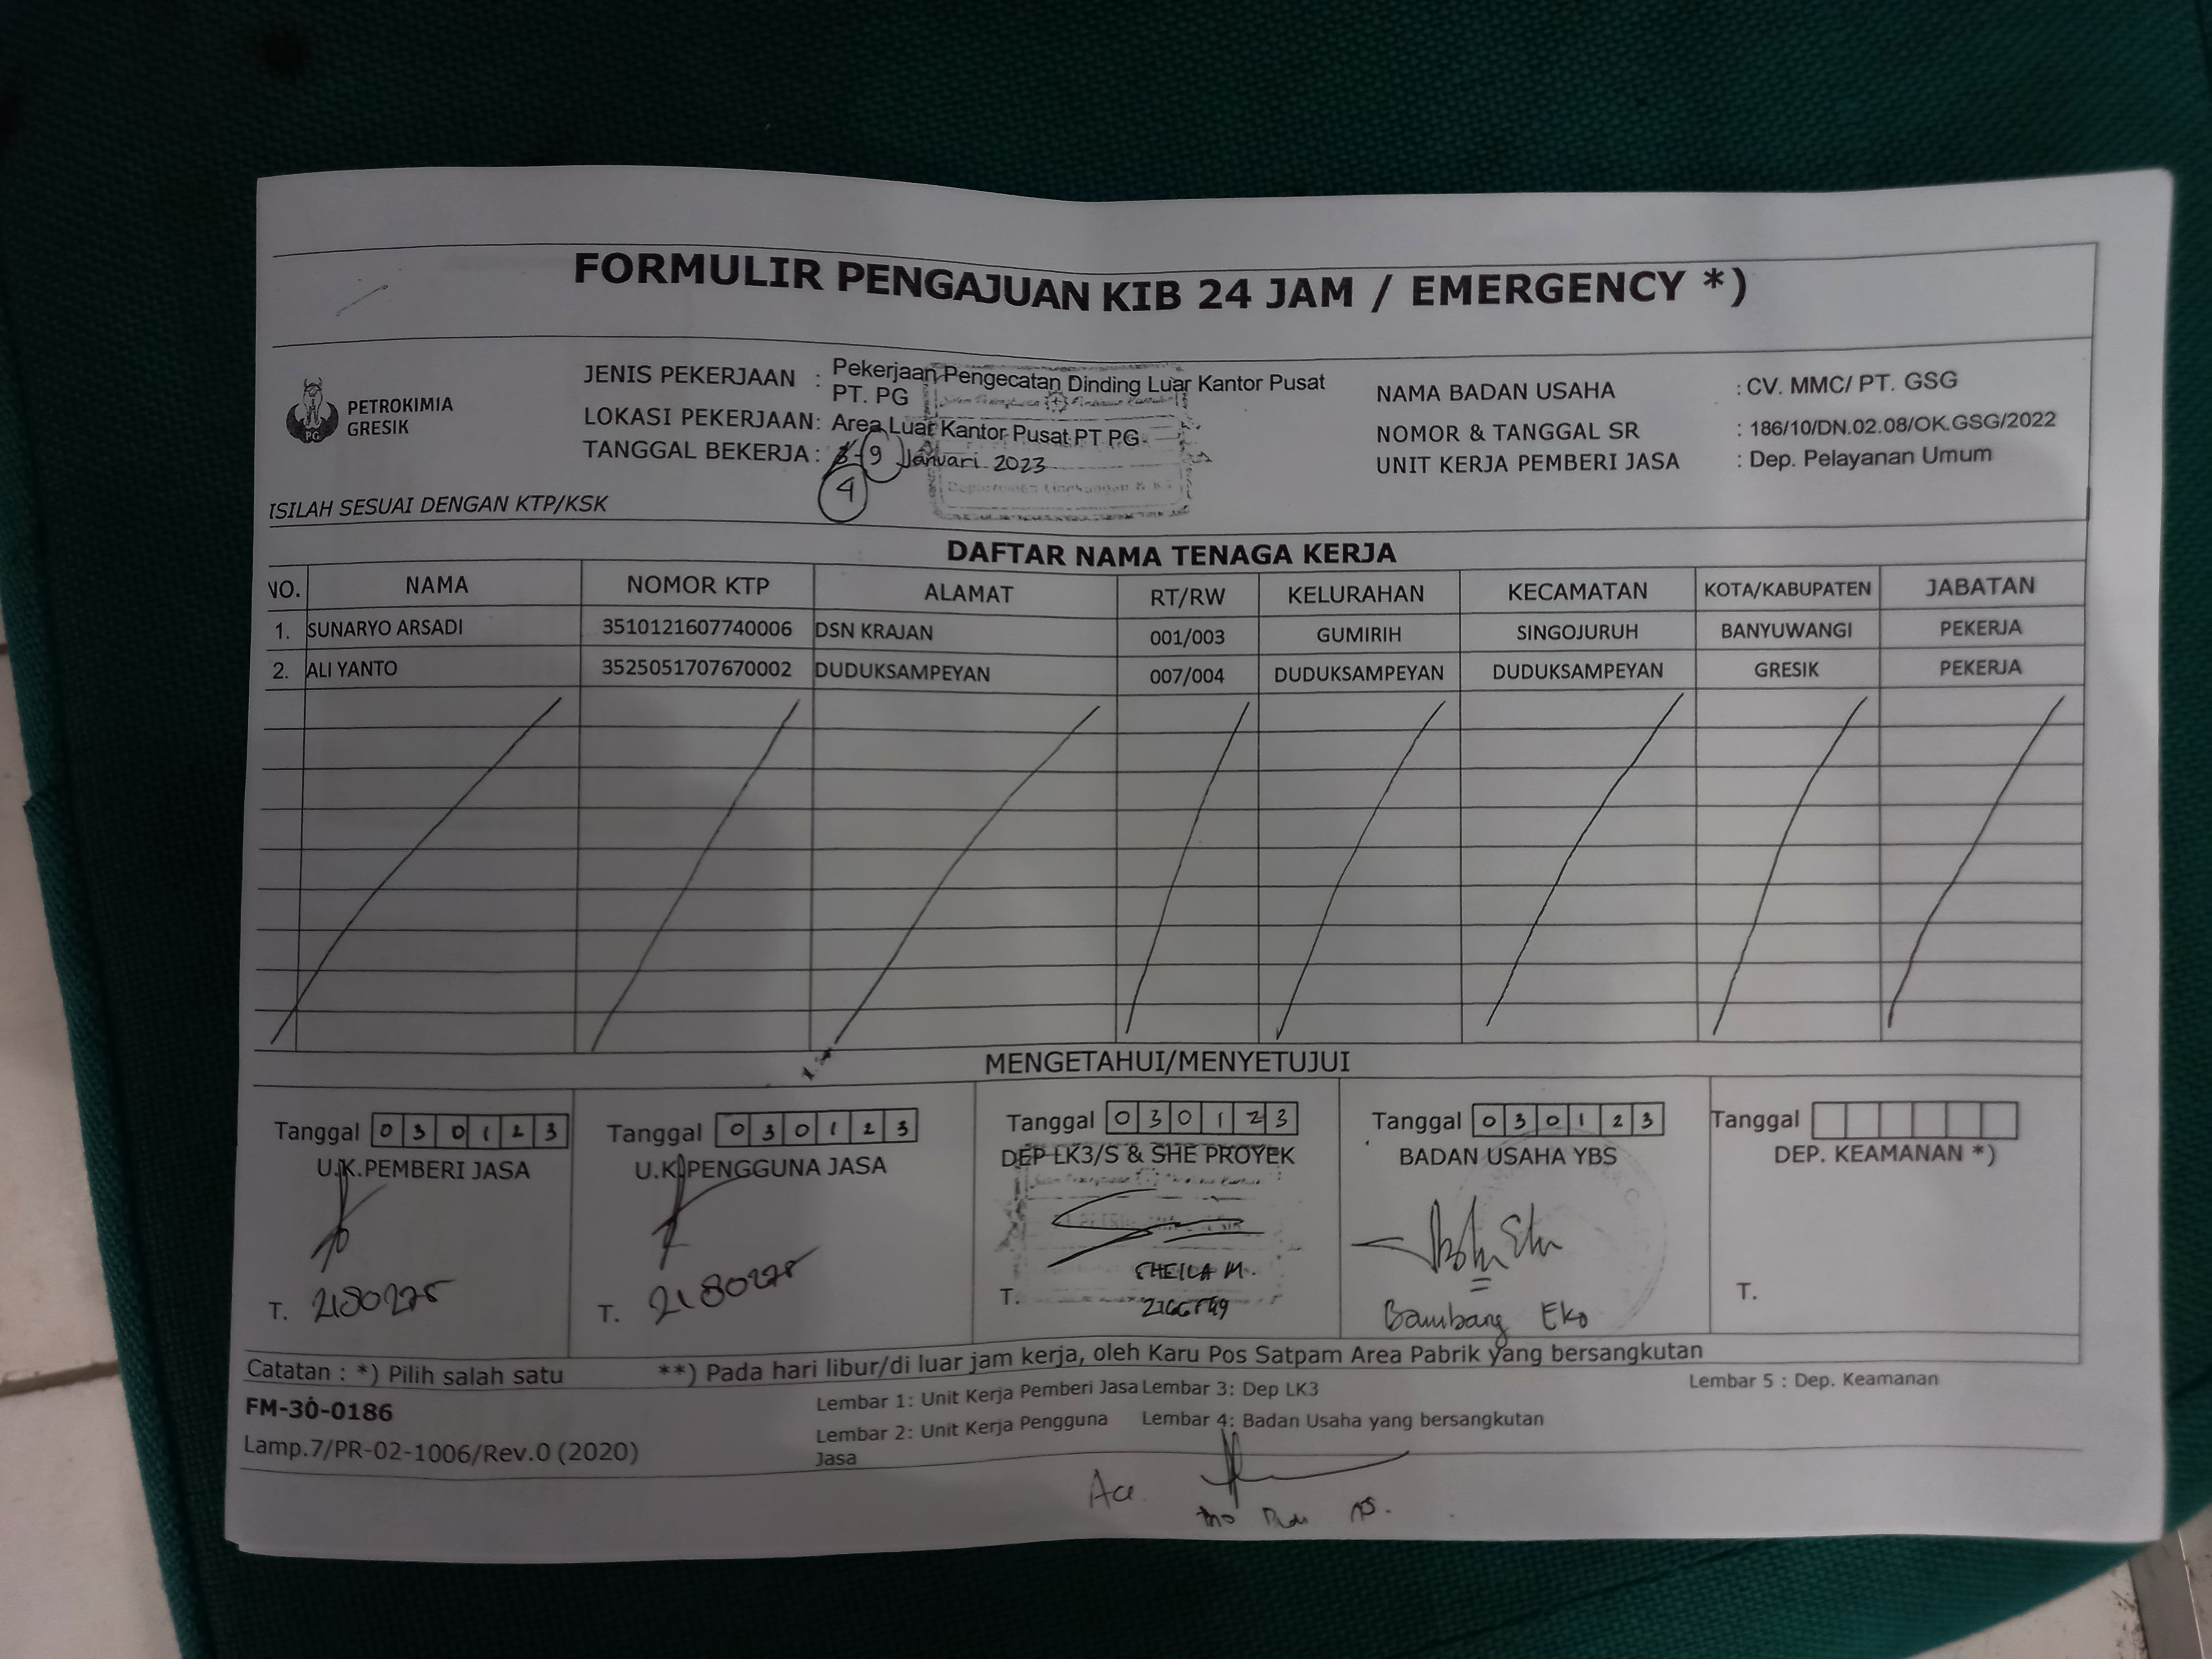 FORMULIR PENGAJUAN KIB 24 JAM / EMERGENCY *)
PETROKIMIA
GRESIK
JENIS PEKERJAAN : Pekerjaan Pengecatan Dinding Luar Kantor Pusat
PT. PG
LOKASI PEKERJAAN: Area Luar Kantor Pusat PT PG
TANGGAL BEKERJA : 9 Januari 2023
4
NAMA BADAN USAHA : CV. MMC/ PT. GSG
NOMOR & TANGGAL SR : 186/10/DN.02.08/OK.GSG/2022
UNIT KERJA PEMBERI JASA : Dep. Pelayanan Umum
ISILAH SESUAI DENGAN KTP/KSK
DAFTAR NAMA TENAGA KERJA
NO. NAMA NOMOR KTP ALAMAT RT/RW KELURAHAN KECAMATAN KOTA/KABUPATEN JABATAN
1. SUNARYO ARSADI 3510121607740006 DSN KRAJAN 001/003 GUMIRIH SINGOJURUH BANYUWANGI PEKERJA
2. ALI YANTO 3525051707670002 DUDUKSAMPEYAN 007/004 DUDUKSAMPEYAN DUDUKSAMPEYAN GRESIK PEKERJA
MENGETAHUI/MENYETUJUI
Tanggal 0 3 0 1 2 3
U.K.PEMBERI JASA
T.
Tanggal 0 3 0 1 2 3
U.K.PENGGUNA JASA
T.
Tanggal 0 3 0 1 2 3
DEP LK3/S & SHE PROYEK
SHEILA M.
T.
Tanggal 0 3 0 1 2 3
BADAN USAHA YBS
Bambang Eko
Tanggal
DEP. KEAMANAN *)
T.
Catatan : *) Pilih salah satu **) Pada hari libur/di luar jam kerja, oleh Karu Pos Satpam Area Pabrik yang bersangkutan
FM-30-0186
Lembar 1: Unit Kerja Pemberi Jasa Lembar 3: Dep LK3 Lembar 5 : Dep. Keamanan
Lembar 2: Unit Kerja Pengguna Lembar 4: Badan Usaha yang bersangkutan
Jasa
Lamp.7/PR-02-1006/Rev.0 (2020)